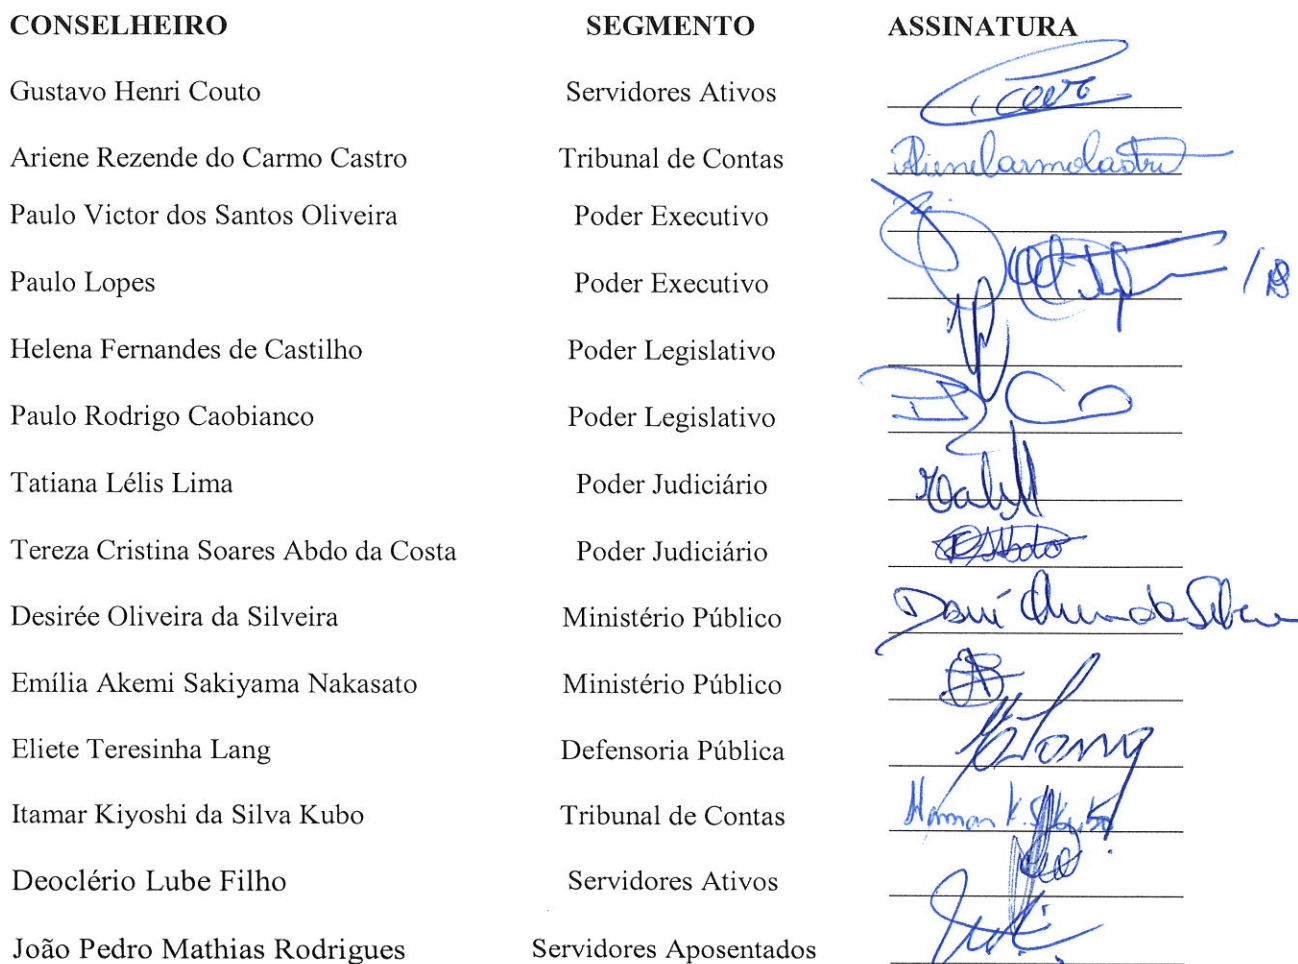 CONSELHEIRO SEGMENTO ASSINATURA
Gustavo Henri Couto Servidores Ativos
Ariene Rezende do Carmo Castro Tribunal de Contas
Paulo Victor dos Santos Oliveira Poder Executivo
Paulo Lopes Poder Executivo
Helena Fernandes de Castilho Poder Legislativo
Paulo Rodrigo Caobianco Poder Legislativo
Tatiana Lélis Lima Poder Judiciário
Tereza Cristina Soares Abdo da Costa Poder Judiciário
Desirée Oliveira da Silveira Ministério Público
Emília Akemi Sakiyama Nakasato Ministério Público
Eliete Teresinha Lang Defensoria Pública
Itamar Kiyoshi da Silva Kubo Tribunal de Contas
Deoclério Lube Filho Servidores Ativos
João Pedro Mathias Rodrigues Servidores Aposentados